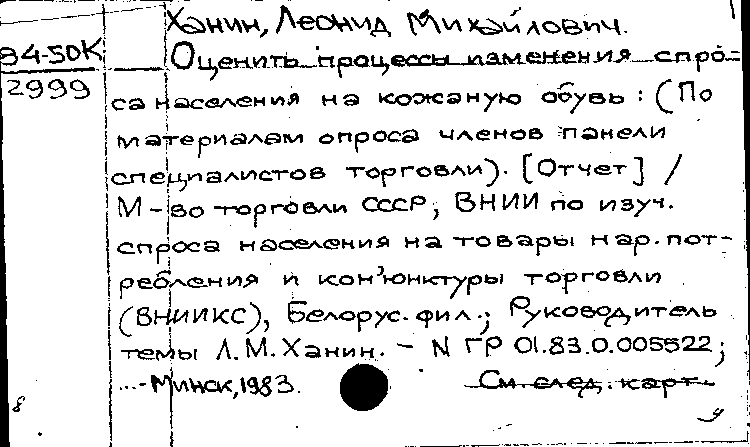 Ханин, Леонид Михайлович.
84-50К Оценить процессы изменения спро=
2999
са населения на кожаную обувь : (По
материалам опроса членов панели
специалистов торговли). [Отчет] /
М-во торговли СССР, ВНИИ по изуч.
спроса населения на товары нар. пот-
ребления и кон'юнктуры торговли
(ВНИИКС), Белорус. фил.; Руководитель
темы Л.М.Ханин. - N ГР 01.83.0.005522;
...-Минск, 1983. См. след. карт.
8